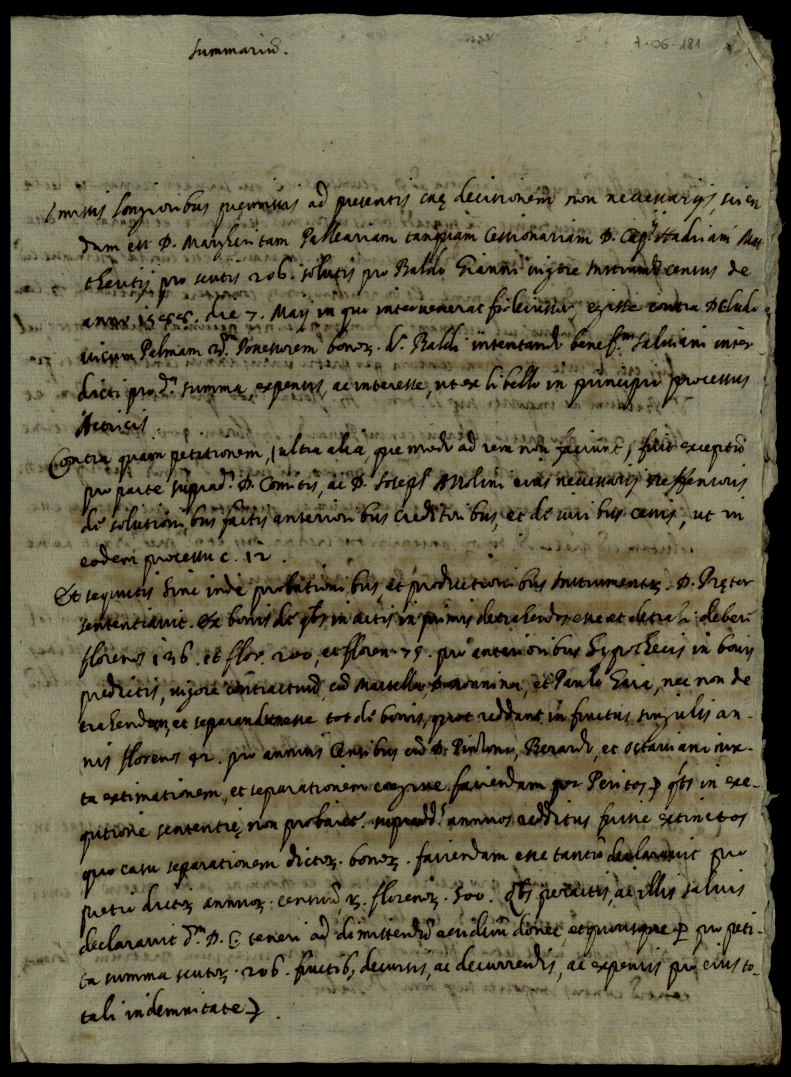 Summariũ.
7-06-181
Omissis longioribus pręmissis ad presentis caę decisionem non necessarijs, scien
dum est D. Margheritam Palleariam tanquam Cessionariam D. Hadriani Mat
theutij pro scutis 206. solutis pro Baldo Gianni vigore Instrum. census de
anno 1555. die 7. Maij in quo intervenerat fideiussor, egisse contra D. Ludo
uicum Palmam Possessorem bonoꝝ. d. Baldi intentando benef. Saluiani inter
dicti pro d. summa, expensis, ac interesse, ut ex libello in principio processus
Actricis.
Contra quam petitionem, (ultra alia, que modo ad rem non faciunt) fuit exceptũ
pro parte suprad. D. Comitis, ac D. Joseph Molini eius necessarij deffensoris
de solutionibus factis anterioribus creditoribus, et de iuribus cessis, ut in
eodem processu c. 12.
Et sequutis hinc inde probationibus et productionibus Instrumentoꝝ. D. Pretor
sententiauit. Ex bonis de qbs in actis in primis detrahendos esse et detrahi deberi
florenos 136. et flor. 200, et floren. 75. pro anterioribus hypothecis in bonis
predictis, vigore contractuũ, cũ Marsello et Paulo nec non de
trahendum, et separandum esse tot de bonis, quot reddant in fructus singulis an-
nis florenos 42. pro annuis Censibus cũ D. Berardo, et Octauiano iux-
ta extimationem, et separationem faciendam per Peritos, qbs in exe-
qutione sententię non probaret. supradd. annuos redditus fuisse extinctos
quo casu separationem dictoꝝ. bonoꝝ. faciendam esse tantũ declarauit pro
pretio dictoꝝ annuoꝝ. censuũ florenoꝝ. 500. Qbs peractis, ac illis saluis
declarauit d. D. C. teneri ad dimittendũ donec, et quousque pro peti-
ta summa scutoꝝ. 206. fructib, decursis, ac decurrendis, ac expensis pro eius to-
tali indemnitate